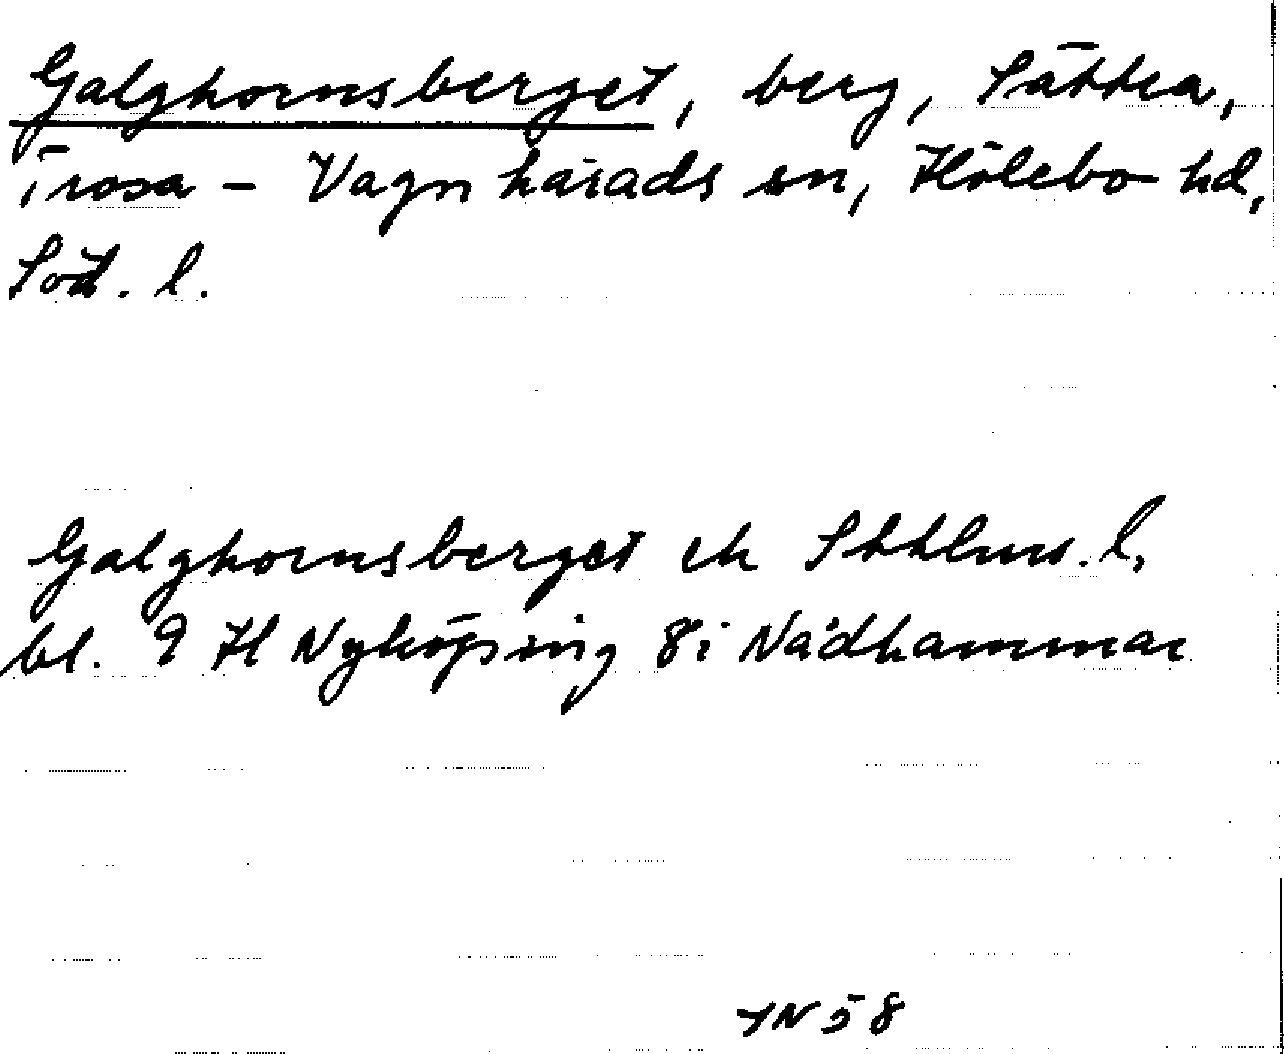 Galghornsberget, berg, Sättra,
Trosa - Vagnhärads sn, Hölebo hd,
Söd. l.
Galghornsberget ek Sthlms. l.
bl. 9 H Nyköping 8i Nådhammar
YN 58